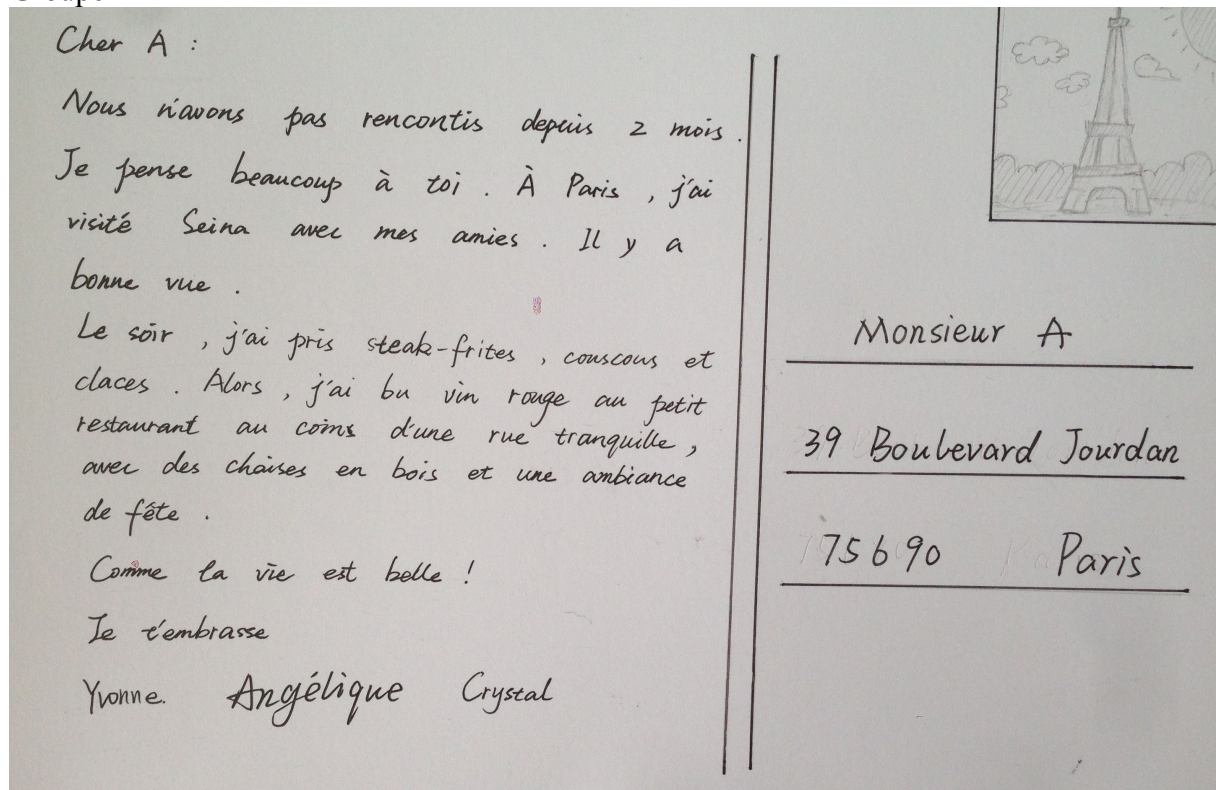 Cher A :
Nous n'avons pas rencontis depuis 2 mois.
Je pense beaucoup à toi. À Paris, j'ai
visité Seina avec mes amies. Il y a
bonne vue.
Le soir, j'ai pris steak-frites, couscous et
claces. Alors, j'ai bu vin rouge au petit
restaurant au coins d'une rue tranquille,
avec des chaises en bois et une ambiance
de fête.
Comme la vie est belle !
Je t'embrasse
Yvonne. Angélique Crystal
Monsieur A
39 Boulevard Jourdan
75690 Paris